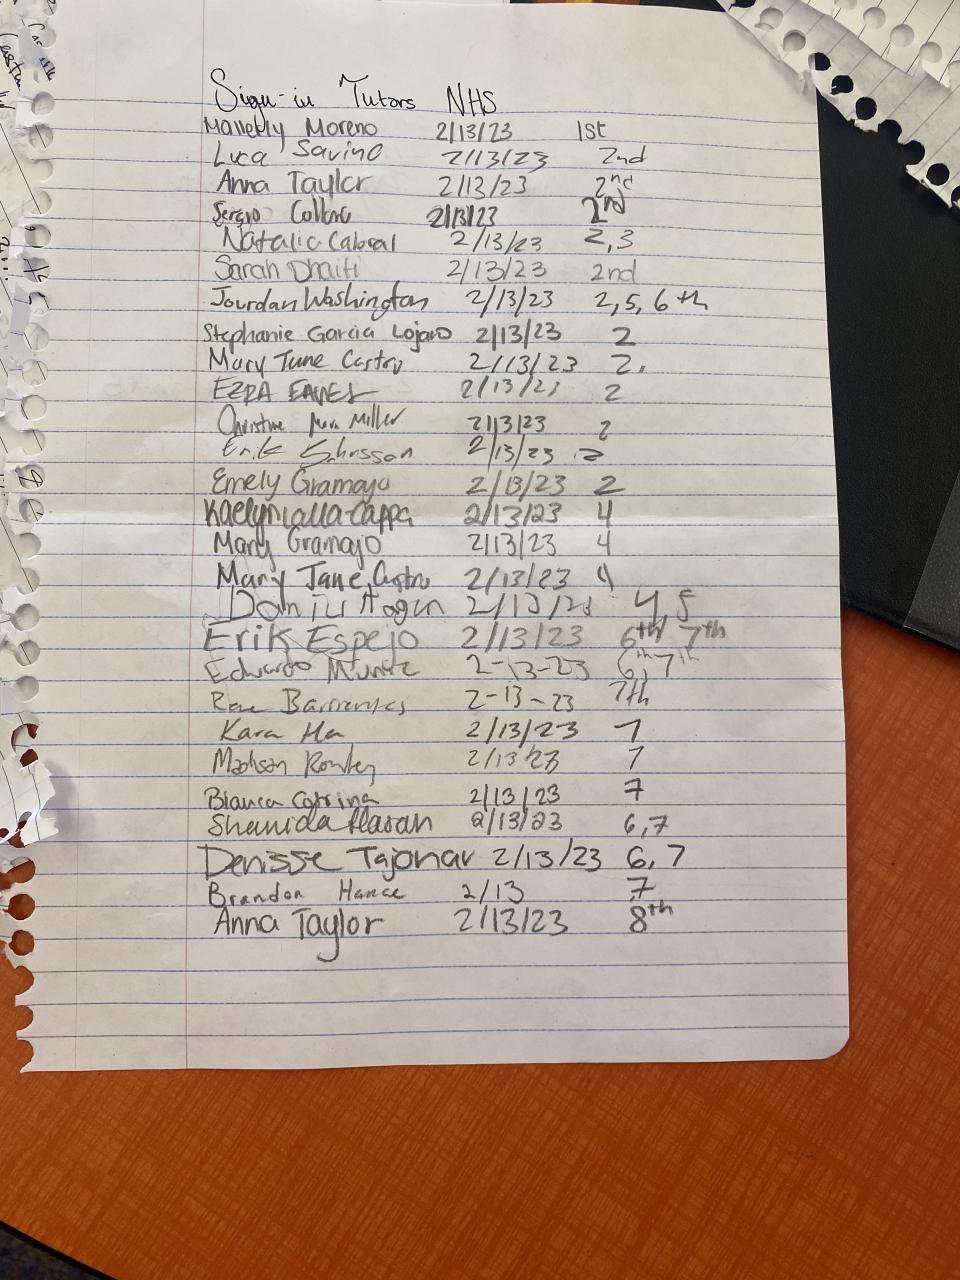 Sign-in Tutors NHS
Moreno 2/13/23 1st
Luca Savino 2/13/23 2nd
Anna Taylor 2/13/23 2nd
Sergio 2/13/23 2nd
Natalia Cabral 2/13/23 2,3
Sarah Dhaiti 2/13/23 2nd
Jourdan Washington 2/13/23 2,5,6th
Stephanie Garcia Lojano 2/13/23 2
Mary June Castro 2/13/23 2.
EZRA 2/13/23 2
Christine Miller 2/13/23 2
Erik 2/13/23 2
Emely Gramajo 2/13/23 2
2/13/23 4
Mary Gramajo 2/13/23 4
Mary Jane Castro 2/13/23 4
Hogen 2/13/23 4,5
Erik Espejo 2/13/23 6th/ 7th
Eduardo 2-13-23 6th 7th
2-13-23 7th
Kara Ha 2/13/23 7
Madison 2/13/23 7
Bianca 2/13/23 7
Shamida Hasan 2/13/23 6,7
Denisse Tajonar 2/13/23 6,7
Brandon Hance 2/13 7
Anna Taylor 2/13/23 8th